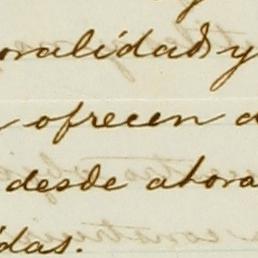 oralidad y
ofrecen
desde ahora
idas.